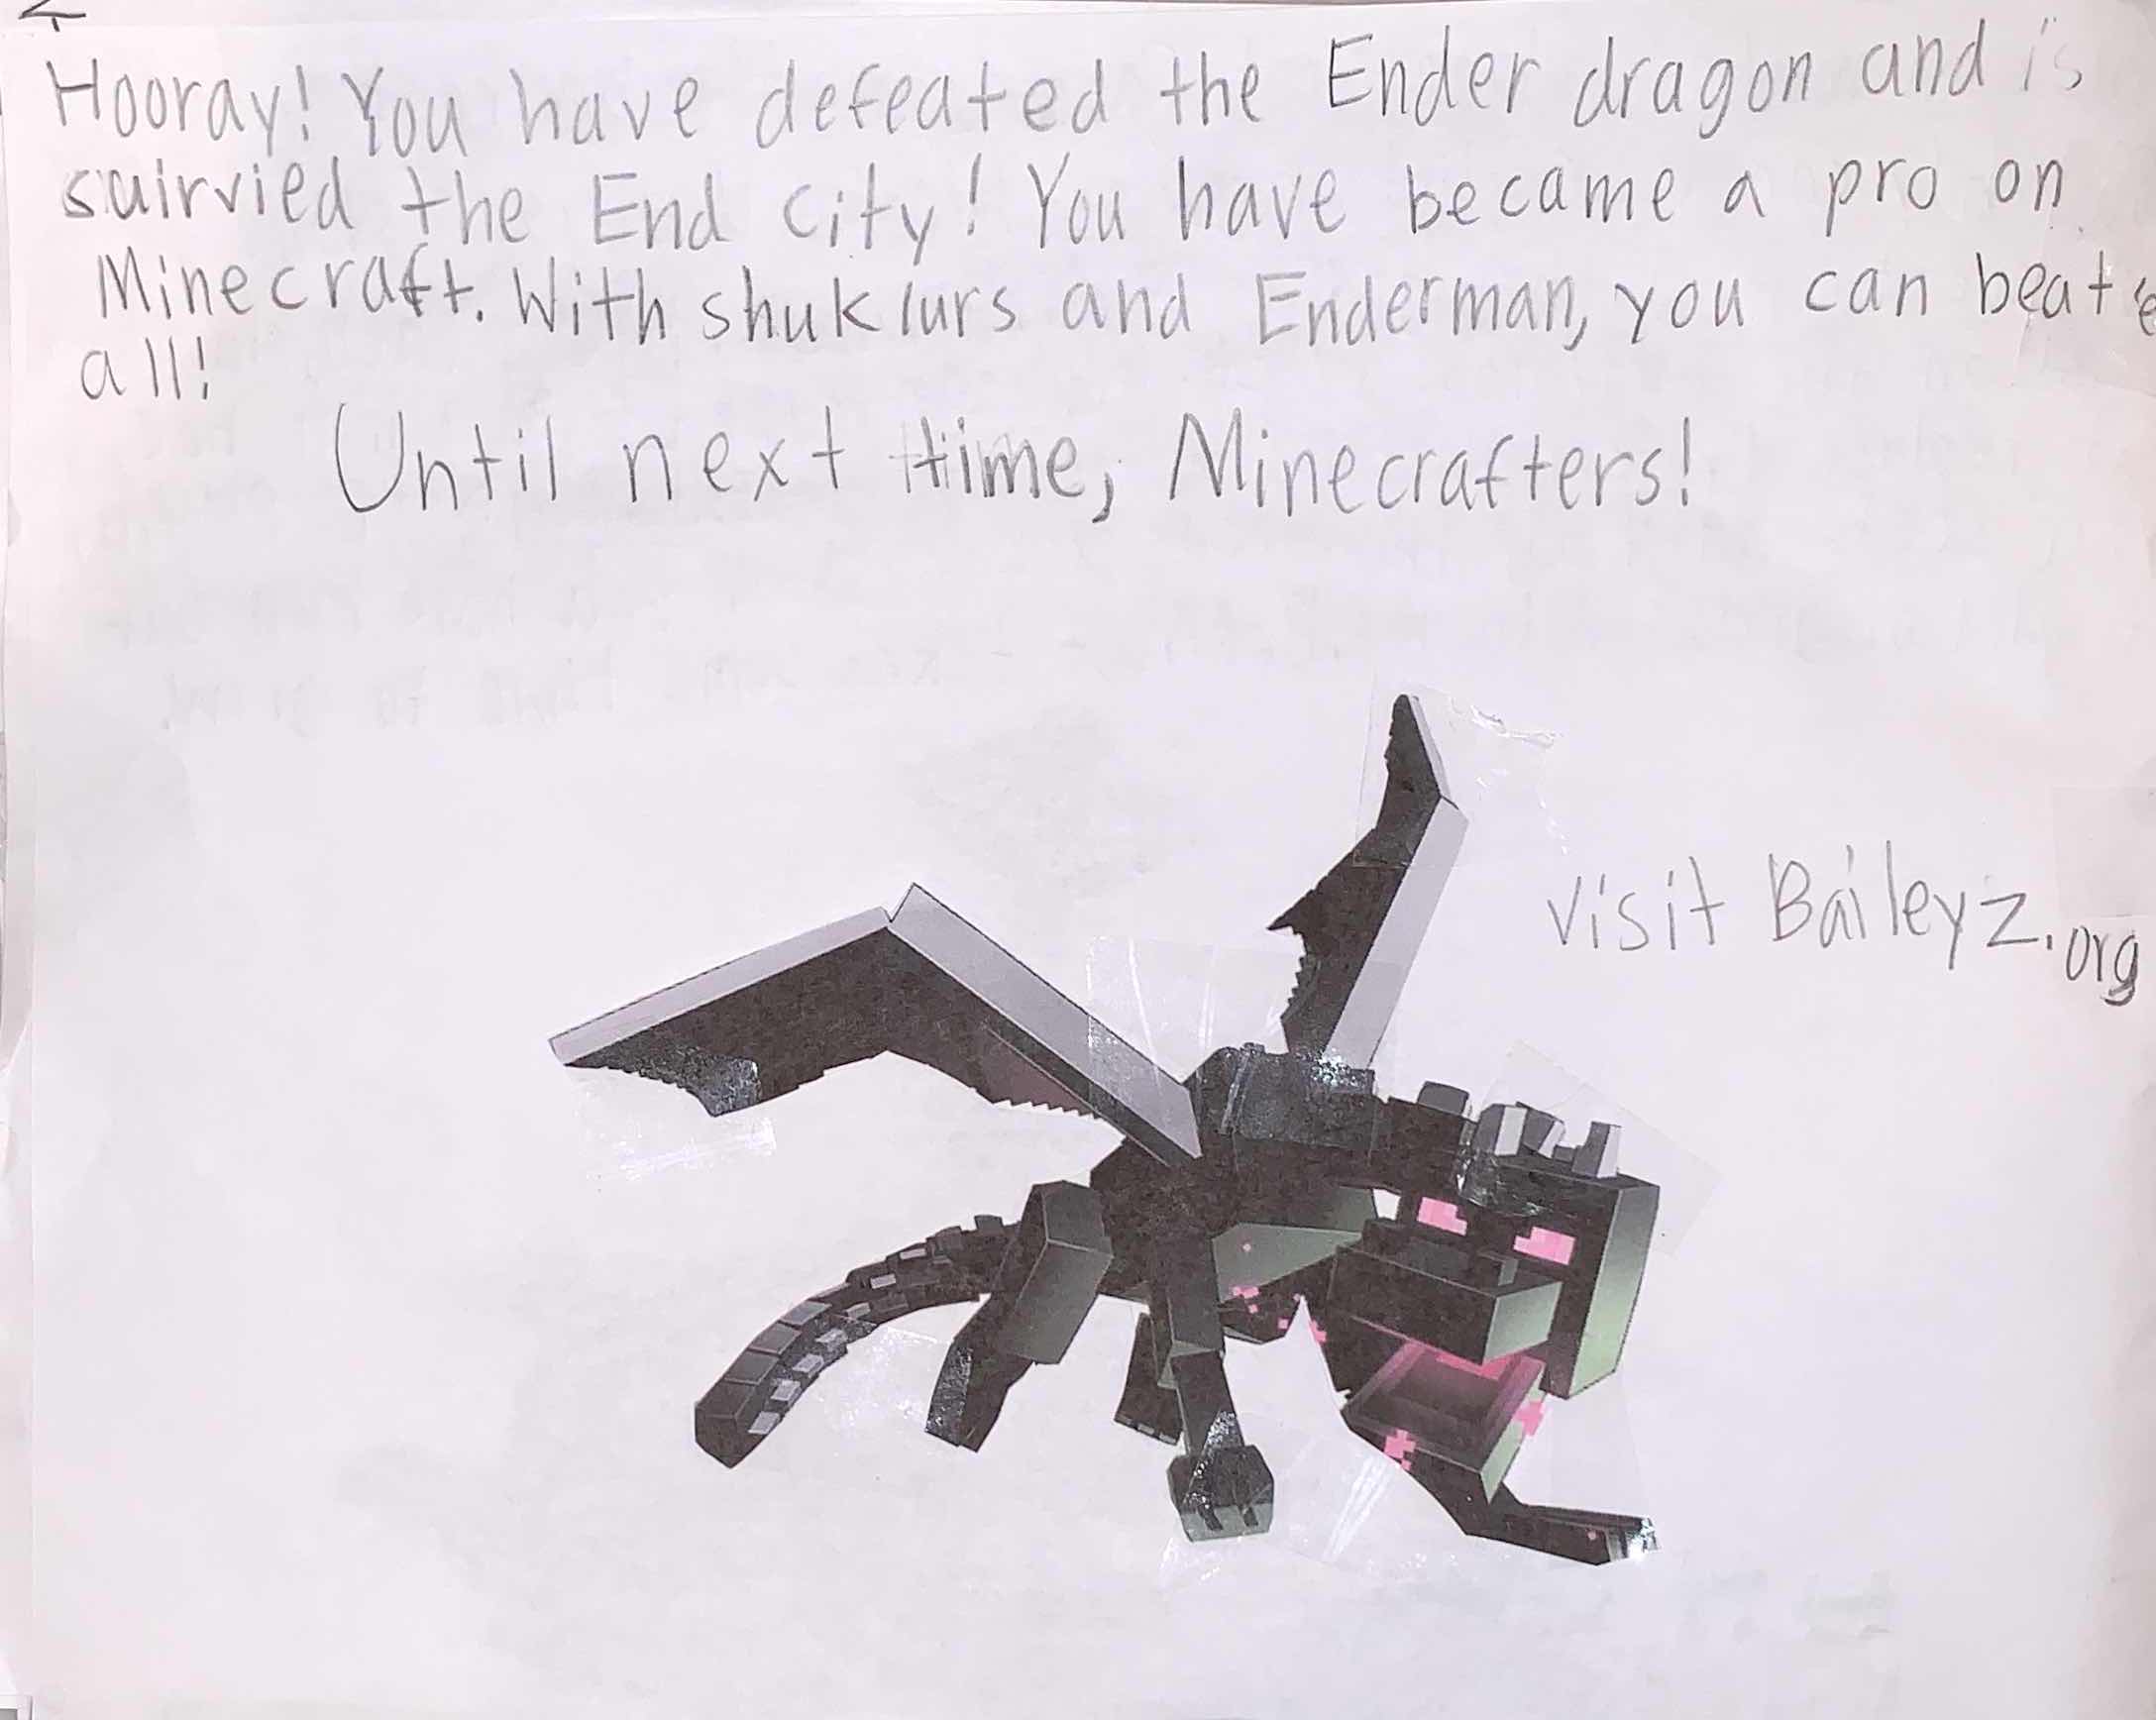 Hooray! You have defeated the Ender dragon and is
suirvied the End city! You have became a pro on
Minecraft. With shuklurs and Enderman, you can beat
all!
Until next time, Minecrafters!
visit Baileyz.org